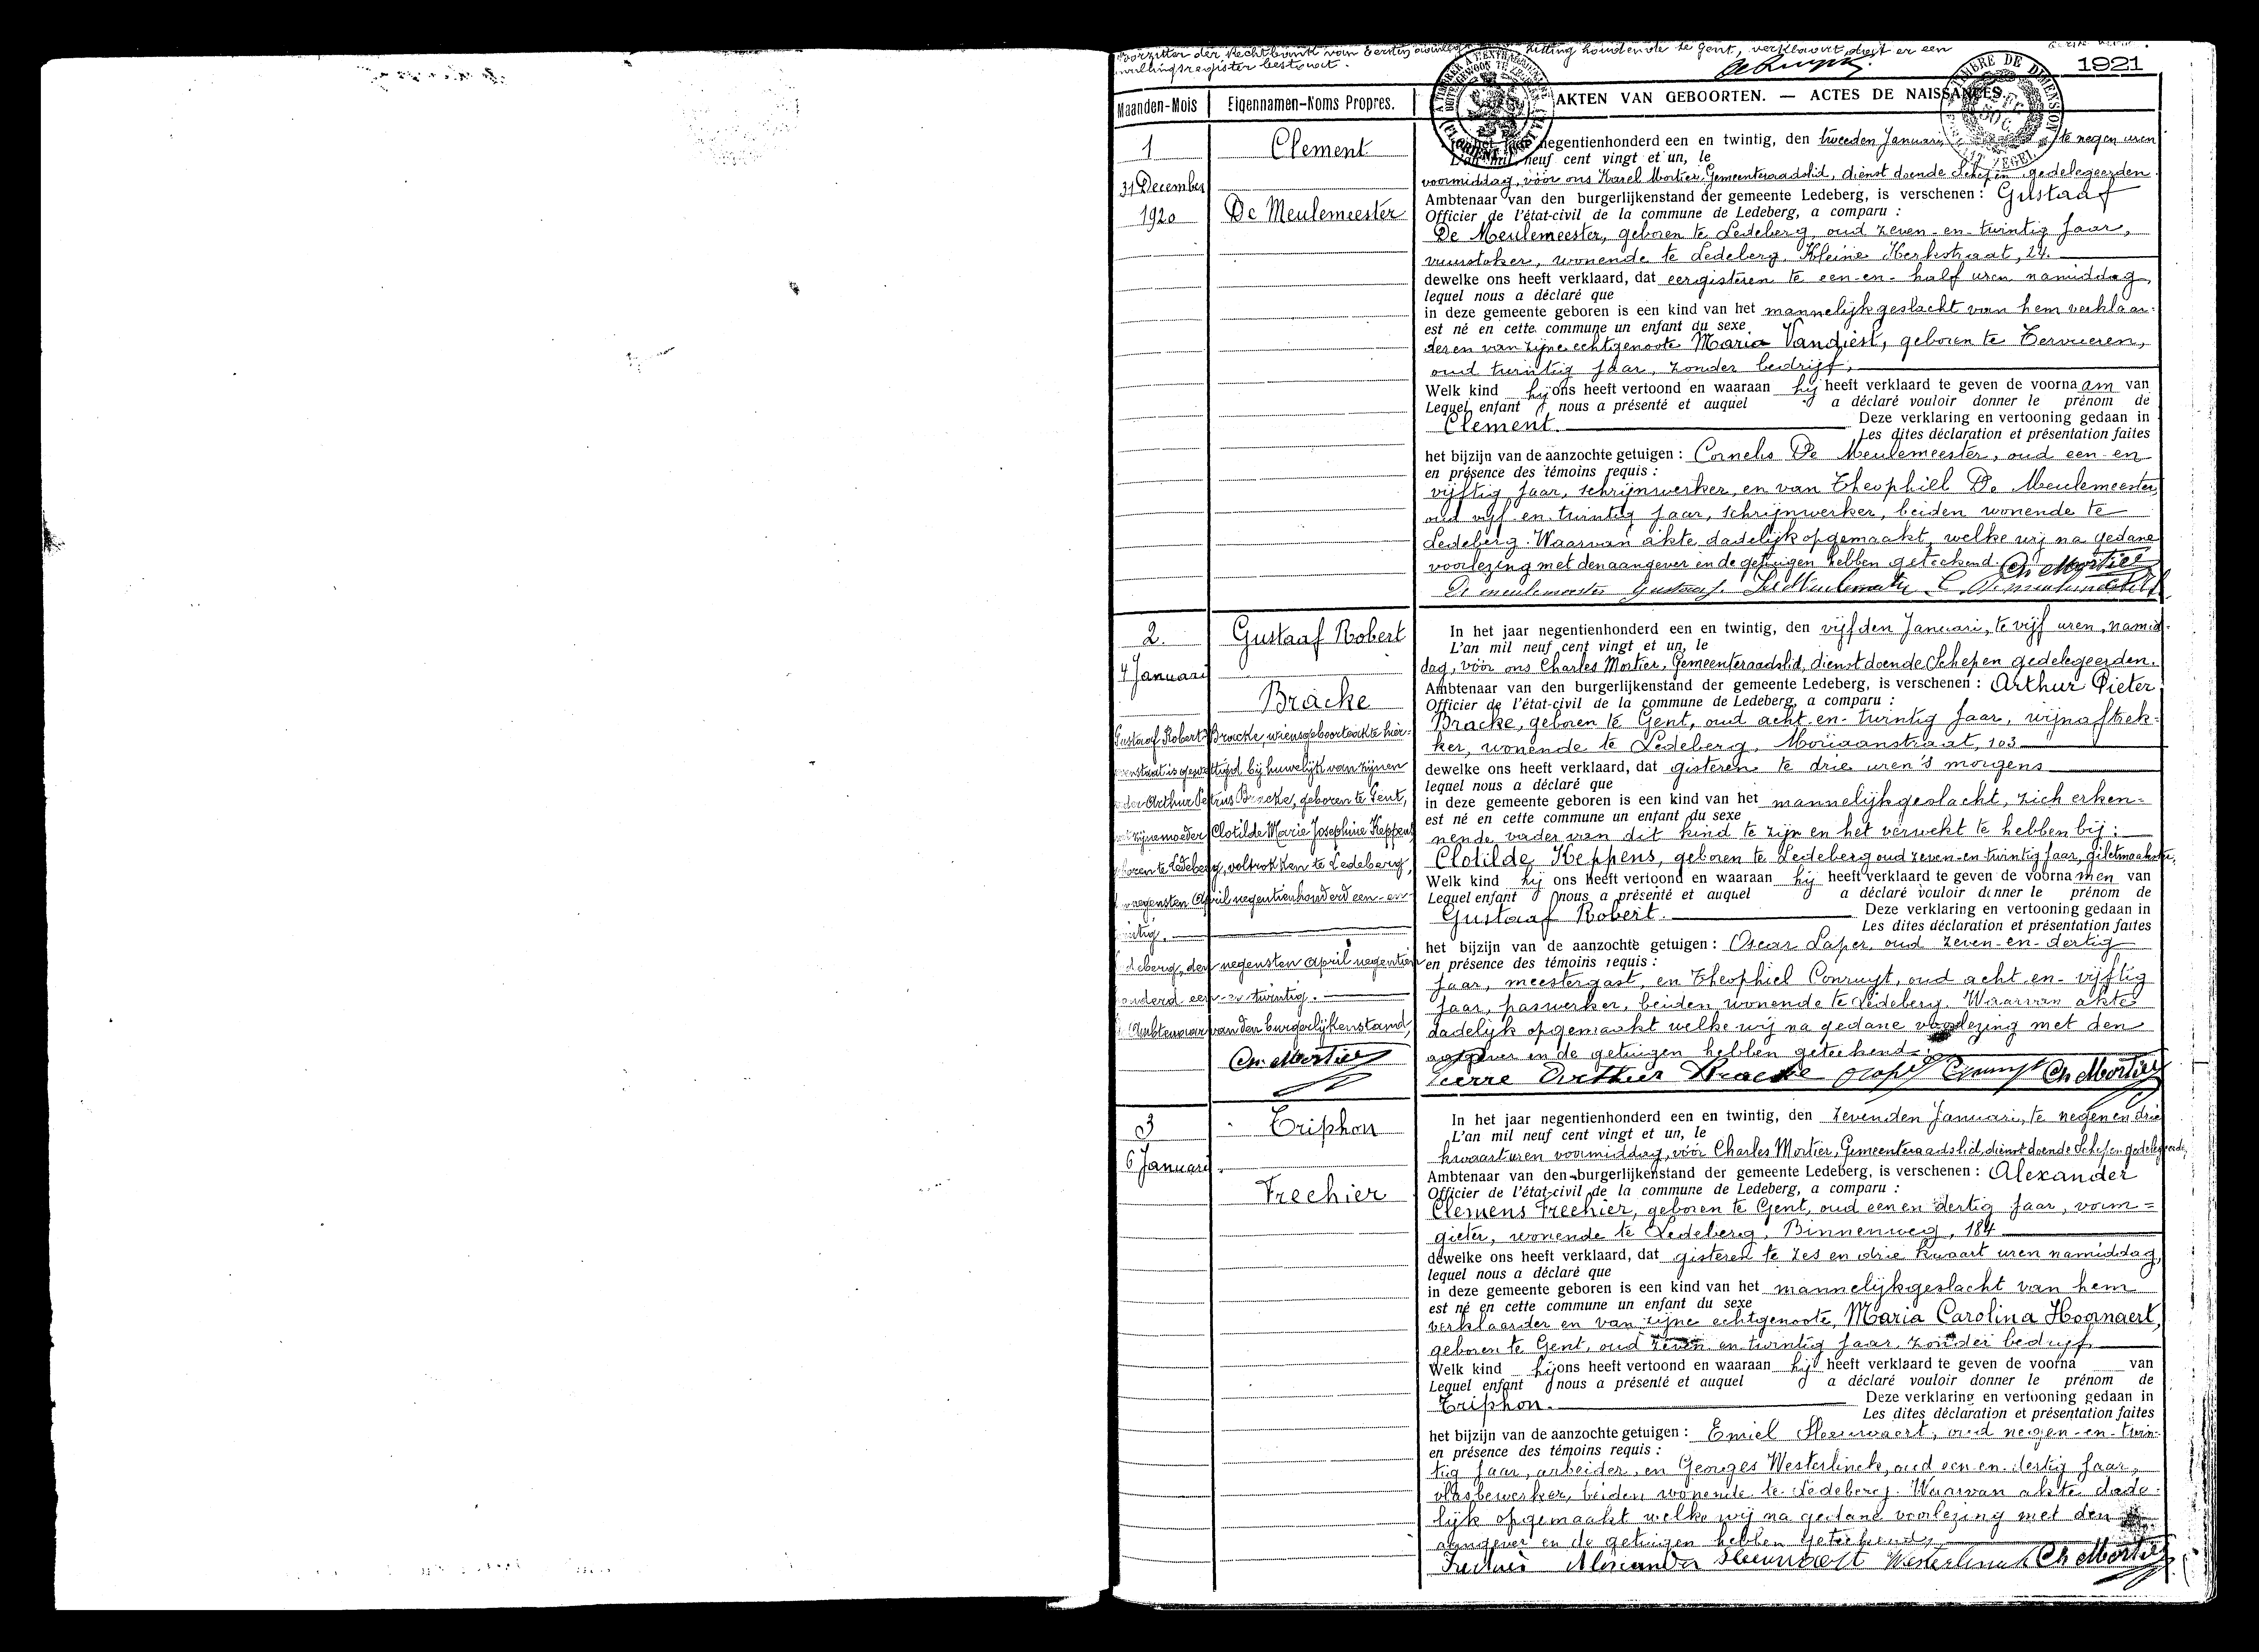 Voorzitter der Rechtbank van eersten zitting houdende te Gent, verklaart dat er een
bestaat.
1921
Maanden-Mois
Eigennamen-Noms Propres.
AKTEN VAN GEBOORTEN. — ACTES DE NAISSANCES.
1
31 December
1920
Clement
De Meulemeester
negentienhonderd een en twintig, den tweeden Januari, te negen uren
L'an mil neuf cent vingt et un, le
voormiddag, vóór ons Karel Mortier, Gemeenteraadslid, dienst doende Schepen gedelegeerden
Ambtenaar van den burgerlijkenstand der gemeente Ledeberg, is verschenen : Gustaaf
Officier de l'état-civil de la commune de Ledeberg, a comparu :
De Meulemeester, geboren te Ledeberg, oud zeven-en-twintig Jaar,
vuurstoker, wonende te Ledeberg, Kleine Kerkstraat, 24.
dewelke ons heeft verklaard, dat eergisteren te een-en-half uren namiddag,
lequel nous a déclaré que
in deze gemeente geboren is een kind van het mannelijkgeslacht van hem verklaar-
est né en cette commune un enfant du sexe
der en van zijne echtgenoote Maria Vandiest, geboren te Tervueren,
oud twintig jaar, zonder bedrijf,
Welk kind hij ons heeft vertoond en waaraan hij heeft verklaard te geven de voornaam van
Lequel enfant nous a présenté et auquel a déclaré vouloir donner le prénom de
Clement. Deze verklaring en vertooning gedaan in
Les dites déclaration et présentation faites
het bijzijn van de aanzochte getuigen : Cornelis De Meulemeester, oud een-en
en présence des témoins requis :
vijftig Jaar, schrijnwerker, en van Theophiel De Meulemeester,
oud vijf-en-twintig Jaar, schrijnwerker, beiden wonende te
Ledeberg. Waarvan akte dadelijk opgemaakt, welke wij na gedane
voorlezing met den aangever en de getuigen hebben geteekend. Ch Mortier
De meulemeester Gustaaf
2.
4 Januari
Gustaaf Robert
Bracke
Gustaaf Robert Bracke, wiens geboorteakte hier-
is gewettigd bij huwelijk van zijnen
Arthur Petrus Bracke, geboren te Gent,
zijne moeder Clotilde Marie Josephine Keppens
te Ledeberg, voltrokken te Ledeberg,
negensten April negentienhonderd een-en-
den negensten April negentien
een-en twintig.
Ambtenaar van den burgerlijkenstand,
Ch. Mortier
In het jaar negentienhonderd een en twintig, den vijfden Januari, te vijf uren, namid-
L'an mil neuf cent vingt et un, le
dag, vóór ons Charles Mortier, Gemeenteraadslid, dienst doende Schepen gedelegeerden.
Ambtenaar van den burgerlijkenstand der gemeente Ledeberg, is verschenen : Arthur Pieter
Officier de l'état-civil de la commune de Ledeberg, a comparu :
Bracke, geboren te Gent, oud acht-en-twintig Jaar, wijnaftrek-
ker, wonende te Ledeberg, Moriaanstraat, 103
dewelke ons heeft verklaard, dat gisteren te drie uren 's morgens
lequel nous a déclaré que
in deze gemeente geboren is een kind van het mannelijkgeslacht, zich erken-
est né en cette commune un enfant du sexe
nende vader van dit kind te zijn en het verwekt te hebben bij :
Clotilde Keppens, geboren te Ledeberg oud zeven-en-twintig Jaar, giletmaakster,
Welk kind hij ons heeft vertoond en waaraan hij heeft verklaard te geven de voornamen van
Lequel enfant nous a présenté et auquel a déclaré vouloir donner le prénom de
Gustaaf Robert. Deze verklaring en vertooning gedaan in
Les dites déclaration et présentation faites
het bijzijn van de aanzochte getuigen : Oscar Laper, oud zeven-en-dertig
en présence des témoins requis :
Jaar, meestergast, en Theophiel Conruyt, oud acht en-vijftig
Jaar, paswerker, beiden wonende te Ledeberg. Waarvan akte
dadelijk opgemaakt welke wij na gedane voorlezing met den
aangever en de getuigen hebben geteekend.
Pierre Arthur Bracke Ch Mortier
3
6 Januari
Triphon
Frechier
In het jaar negentienhonderd een en twintig, den zevenden Januari, te negen en drie
L'an mil neuf cent vingt et un, le
kwaart uren voormiddag, vóór Charles Mortier, Gemeenteraadslid, dienst doende Schepen gedelegeerde,
Ambtenaar van den burgerlijkenstand der gemeente Ledeberg, is verschenen : Alexander
Officier de l'état-civil de la commune de Ledeberg, a comparu :
Clemens Frechier, geboren te Gent, oud een en dertig Jaar, vorm=
gieter, wonende te Ledeberg, Binnenweg, 184
dewelke ons heeft verklaard, dat gisteren te zes en drie kwaart uren namiddag,
lequel nous a déclaré que
in deze gemeente geboren is een kind van het mannelijkgeslacht van hem
est né en cette commune un enfant du sexe
verklaarder en van zijne echtgenoote, Maria Carolina Hoornaert,
geboren te Gent, oud zeven en twintig Jaar, zonder bedrijf,
Welk kind hij ons heeft vertoond en waaraan hij heeft verklaard te geven de voorna van
Lequel enfant nous a présenté et auquel a déclaré vouloir donner le prénom de
Triphon. Deze verklaring en vertooning gedaan in
Les dites déclaration et présentation faites
het bijzijn van de aanzochte getuigen : Emiel oud negen-en-twin-
en présence des témoins requis :
tig Jaar, arbeider, en Georges Westerlinck, oud een-en-dertig Jaar,
vlasbewerker, beiden wonende te Ledeberg. Waarvan akte dade-
lijk opgemaakt welke wij na gedane voorlezing met den
aangever en de getuigen hebben geteekend,
Alexander Westerlinck Ch Mortier